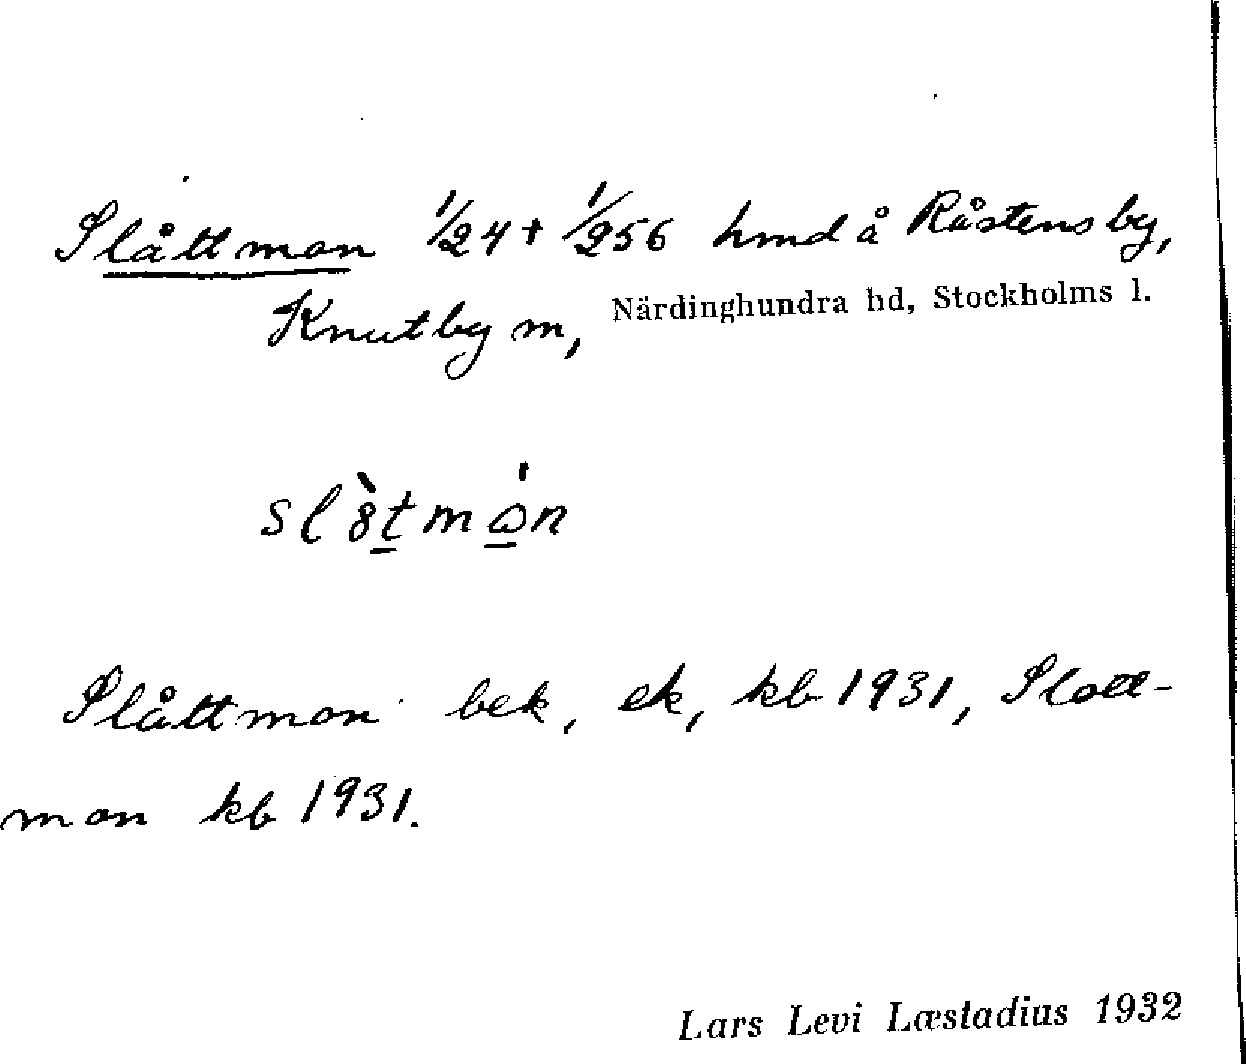 Slåttmon 1/24 + 1/256 hmd å Råstensby,
Knutby sn, Närdinghundra hd, Stockholms l.
Slåttmon bek, ek, kb 1931, Slott-
mon kb 1931.
Lars Levi Læstadius 1932